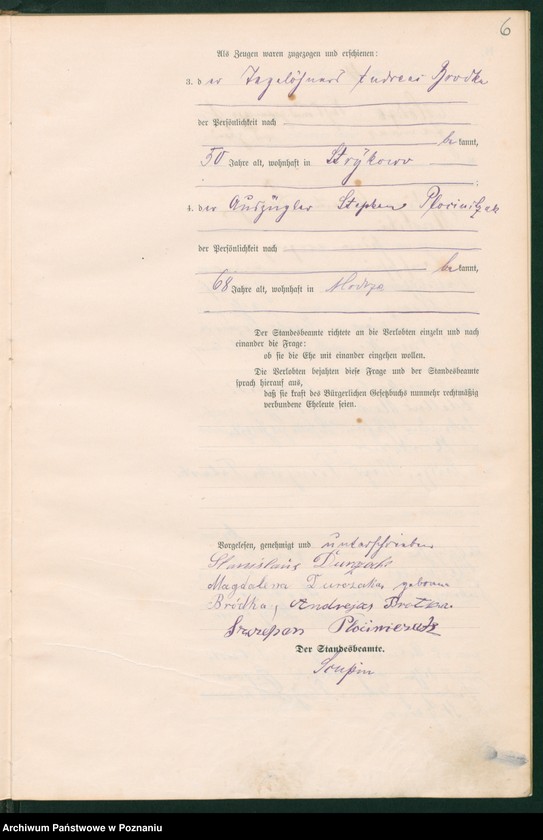 6
Als Zeugen waren zugezogen und erschienen:
3. der Tagelöhner Andreas Brodka
der Persönlichkeit nach
bekannt,
50 Jahre alt, wohnhaft in Strykowo
;
4. der Auszügler Stephan Plociniczak
der Persönlichkeit nach
bekannt,
68 Jahre alt, wohnhaft in Modrze
Der Standesbeamte richtete an die Verlobten einzeln und nach
einander die Frage:
ob sie die Ehe mit einander eingehen wollen.
Die Verlobten bejahten diese Frage und der Standesbeamte
sprach hierauf aus,
daß sie kraft des Bürgerlichen Gesetzbuchs nunmehr rechtmäßig
verbundene Eheleute seien.
Vorgelesen, genehmigt und unterschrieben
Stanislaus
Magdalena geborene
Brodka, Andrzej
Szczepan
Der Standesbeamte.
Archiwum Państwowe w Poznaniu